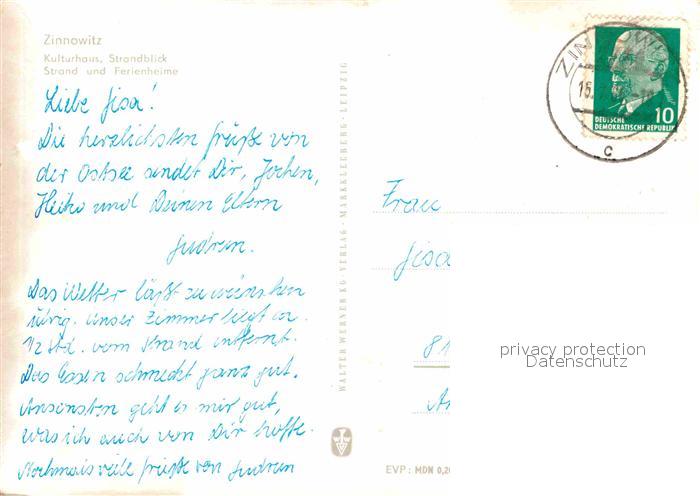 Zinnowitz
Kulturhaus, Strandblick
Strand und Ferienheime
Liebe Gisa!
Die herzlichsten Grüße von
der Ostsee sendet Dir, Jochen,
Heiko und Deinen Eltern
Gudrun.
Das Wetter läßt zu wünschen
übrig. Unser Zimmer liegt ca.
1/2 Std. vom Strand entfernt.
Das Essen schmeckt ganz gut.
Ansonsten geht es mir gut,
was ich auch von Dir hoffe.
Nochmals viele Grüße von Gudrun
WALTER WERNER KG · VERLAG · MARKKLEEBERG · LEIPZIG
ZINNOWITZ
15.
c
10
DEUTSCHE
DEMOKRATISCHE REPUBLIK
Frau
Gisa
81
privacy protection
Datenschutz
EVP: MDN 0,20